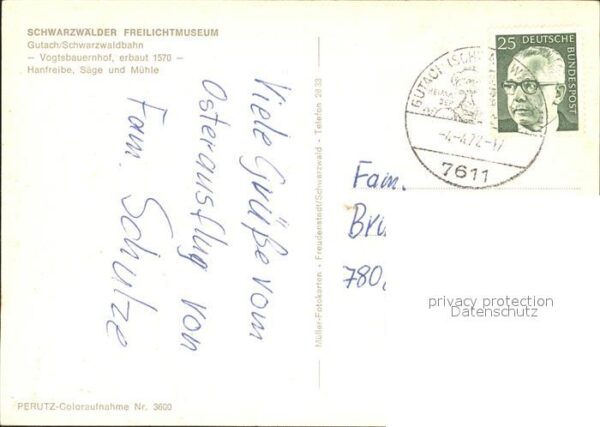 SCHWARZWÄLDER FREILICHTMUSEUM
Gutach/Schwarzwaldbahn
– Vogtsbauernhof, erbaut 1570 –
Hanfreibe, Säge und Mühle
Viele Grüße vom
Osterausflug von
Fam. Schulze
Müller-Fotokarten · Freudenstadt/Schwarzwald · Telefon 28 33
25 DEUTSCHE
BUNDESPOST
GUTACH (SCHW
-4.4.72-17
7611
Fam.
Bri
780
privacy protection
Datenschutz
PERUTZ-Coloraufnahme Nr. 3600